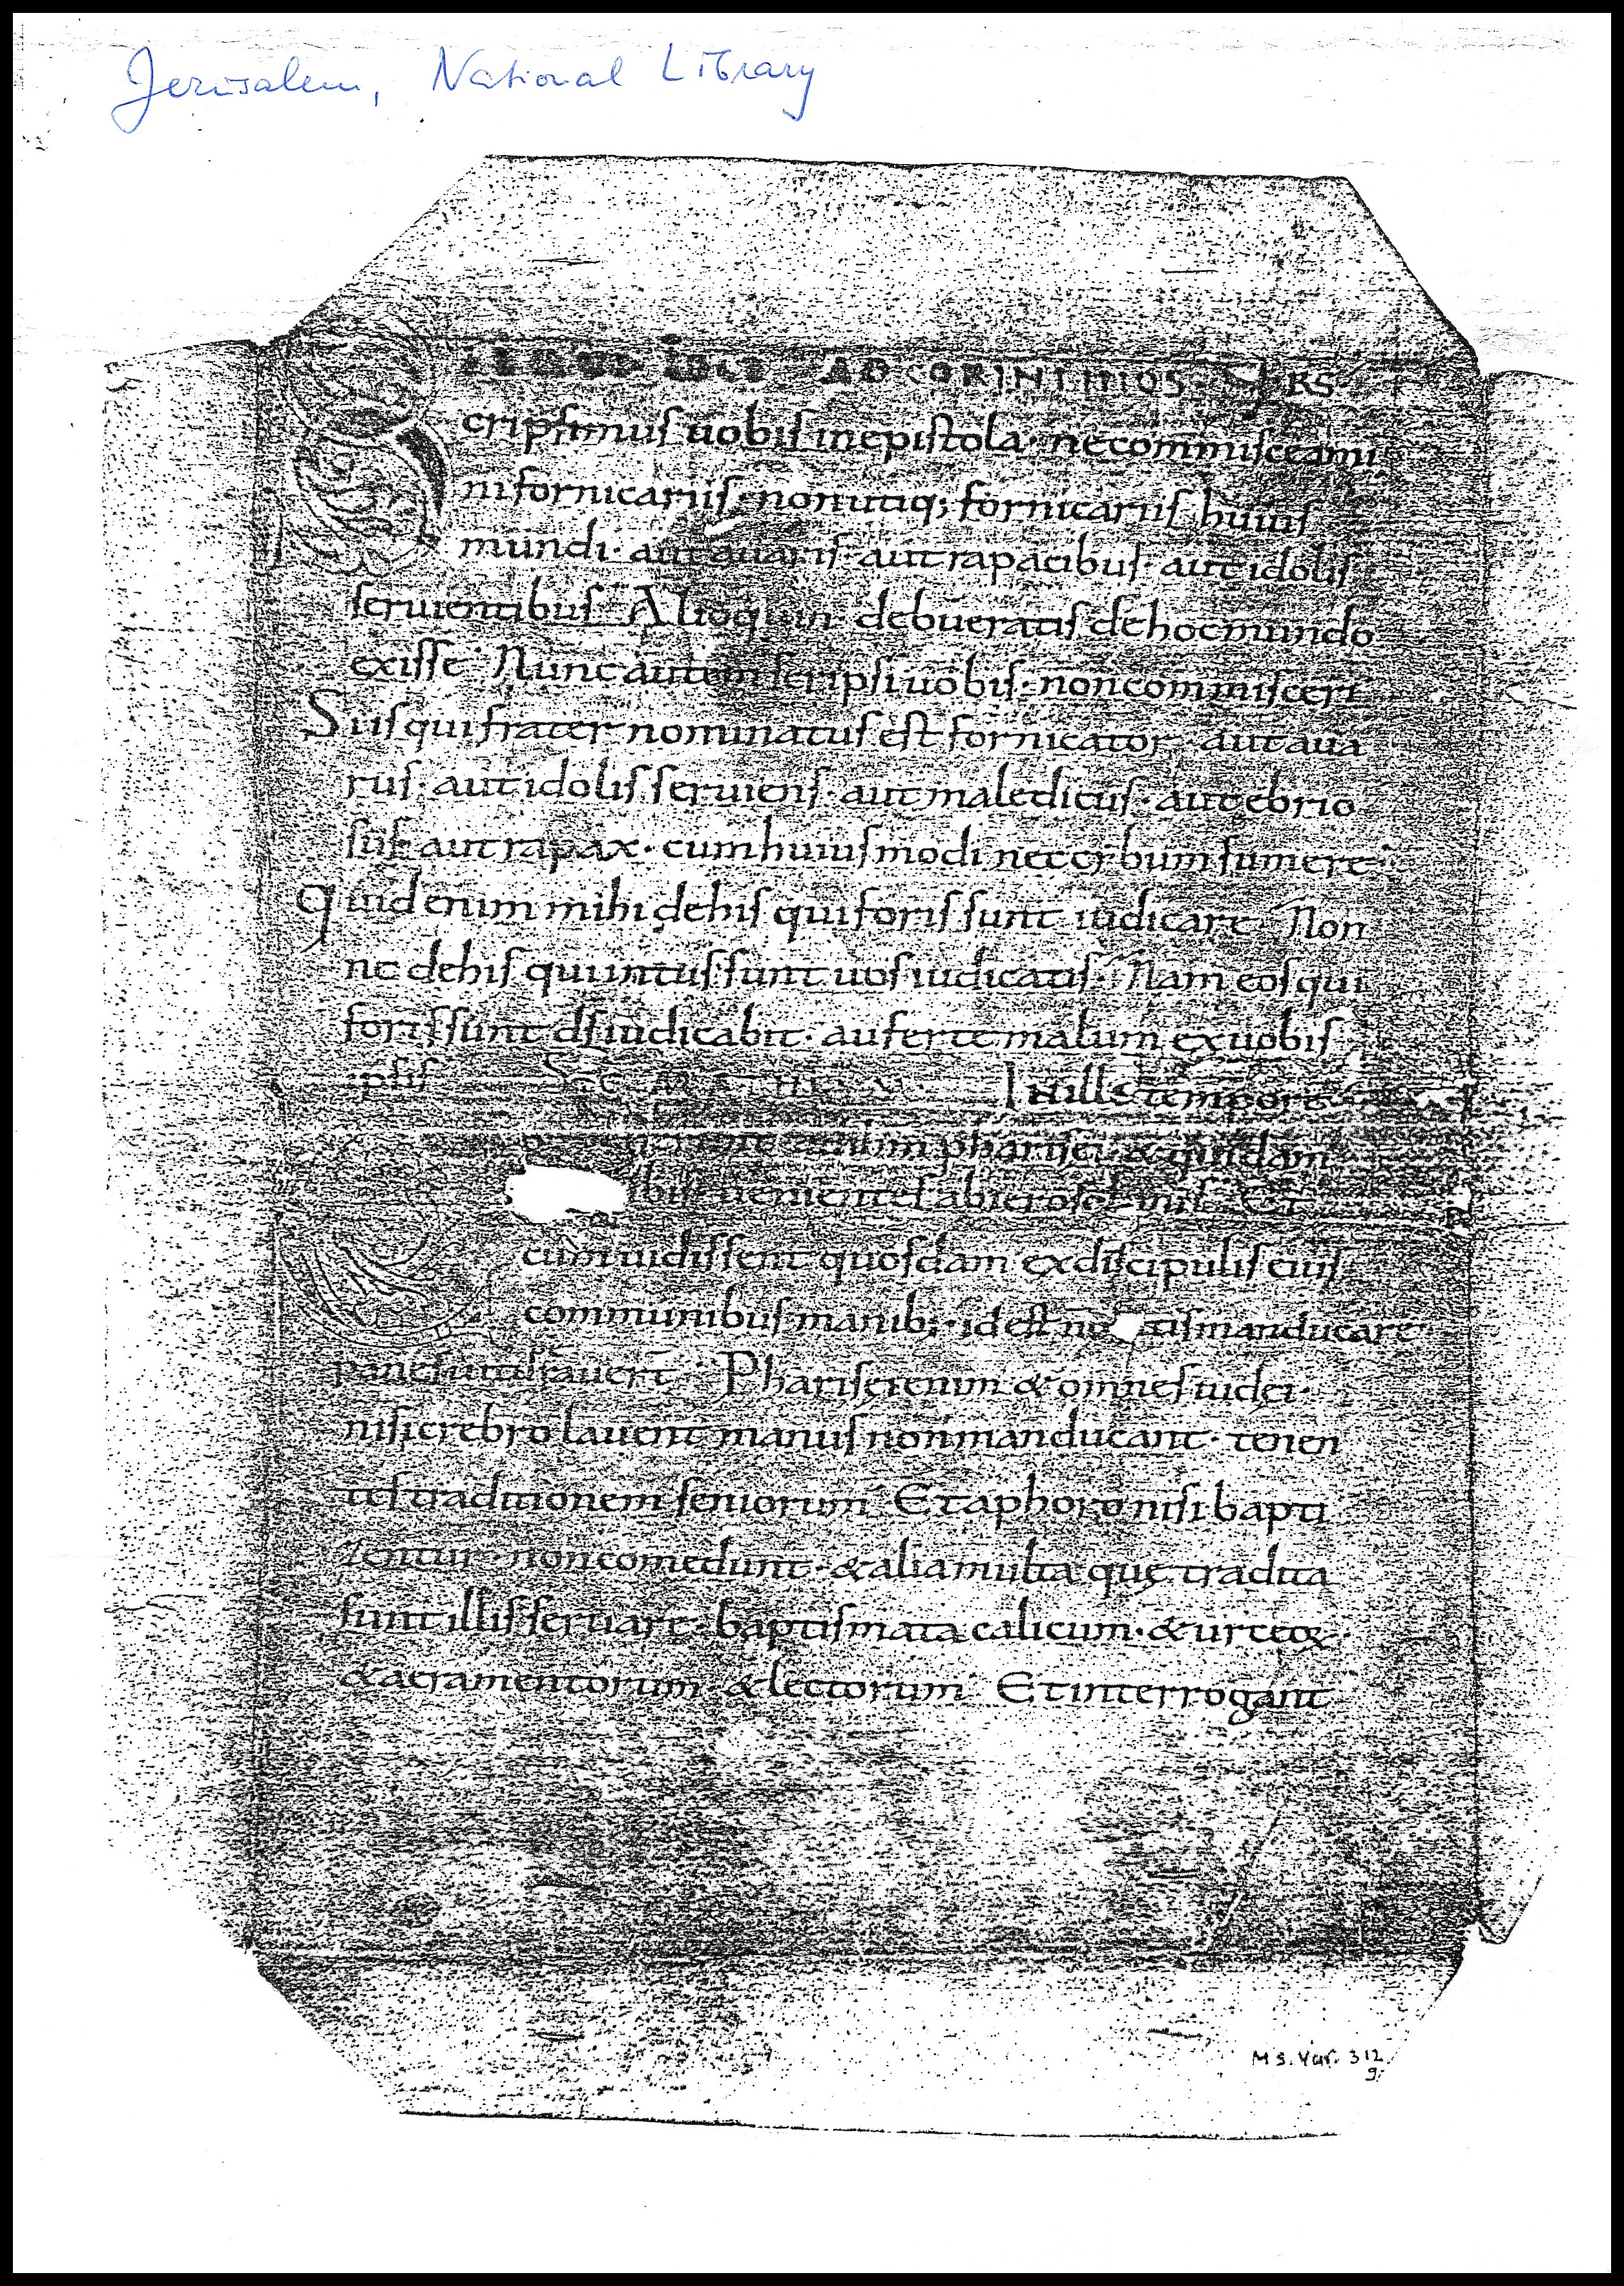 Jerusalem, National Library
AD CORINTHIOS. FRS
Scripsimus uobis in epistola · ne commisceami
ni fornicariis · non utiq; fornicariis huius
mundi · aut auaris · aut rapacibus · aut idolis
seruientibus Alioquin debueratis de hoc mundo
exisse Nunc autem scripsi uobis · non commisceri
Si is qui frater nominatus est fornicator aut aua
rus · aut idolis seruiens · aut maledicus · aut ebrio
sus aut rapax · cum huius modi nec cybum sumere
Quid enim mihi de his qui foris sunt iudicare Non
ne de his qui intus sunt uos iudicatis · Nam eos qui
foris sunt ds iudicabit · auferte malum ex uobis
ipsis In illo tempore
pharisei · & quidam
ibus uenientes ab Et
cum uidissent quosdam ex discipulis eius
communibus manib; · id est no tis manducare
panes uituperauer̄ Pharisei enim & omnes iudei ·
nisi crebro lauent manus non manducant · tenen
tes traditionem seniorum Et a phoro nisi bapti
zentur · non comedunt · & alia multa quę tradita
sunt illis seruare · baptismata calicum · & urceoꝝ ·
& acramentorum & lectorum Et interrogant
Ms. Var. 312
9